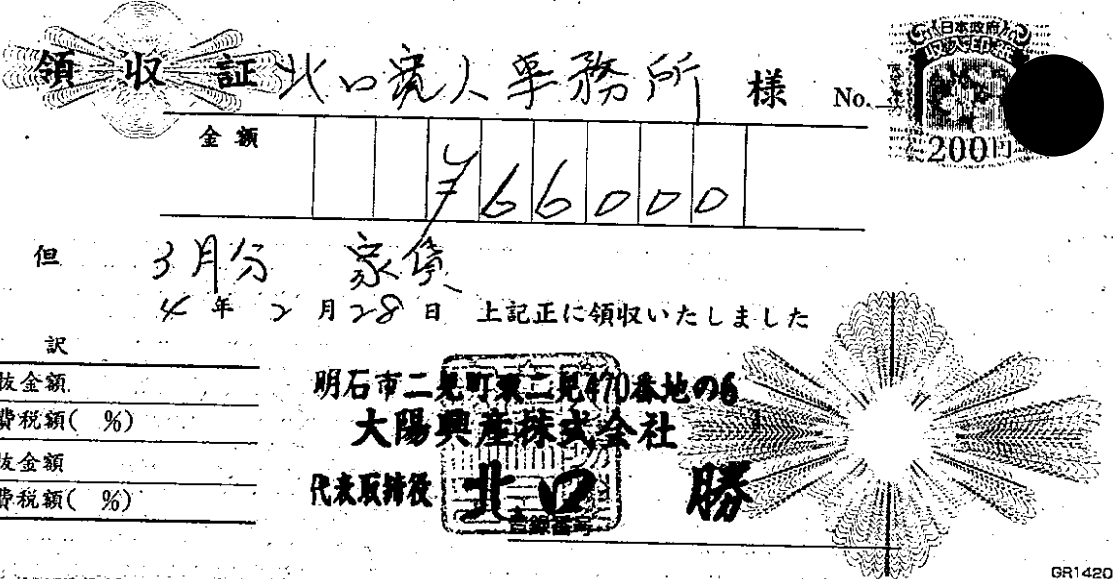 領収証 北口寛人事務所 様 No.
日本政府
200円
金額
¥66000
但 3月分 家賃
4年2月28日 上記正に領収いたしました
訳
抜金額
費税額( %)
抜金額
費税額( %)
明石市二見町東二見470番地の6
大陽興産株式会社
代表取締役 北口 勝
登録番号
GR1420